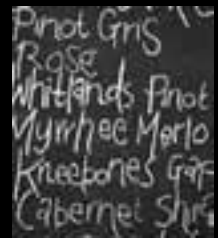 Pinot Gris
Rose
Whitlands Pinot
Myrrhee Merlo
Kneebones Gar
Cabernet Shir